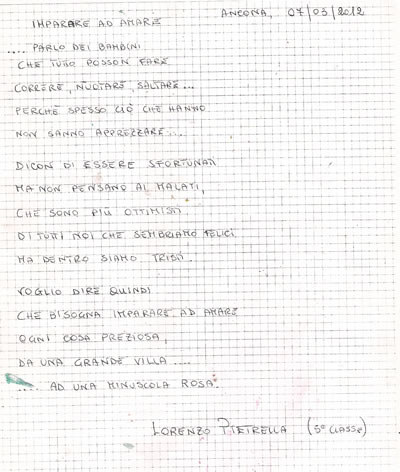 ANCONA, 07/03/2012
IMPARARE AD AMARE
.... PARLO DEI BAMBINI
CHE TUTTO POSSON FARE
CORRERE, NUOTARE, SALTARE...
PERCHÈ SPESSO CIÒ CHE HANNO
NON SANNO APPREZZARE....
DICON DI ESSERE SFORTUNATI
MA NON PENSANO AI MALATI,
CHE SONO PIÙ OTTIMISTI
DI TUTTI NOI CHE SEMBRIAMO FELICI
MA DENTRO SIAMO TRISTI.
VOGLIO DIRE QUINDI
CHE BISOGNA IMPARARE AD AMARE
OGNI COSA PREZIOSA,
DA UNA GRANDE VILLA ....
.... AD UNA MINUSCOLA ROSA.
LORENZO PIETRELLA (5ª CLASSE)